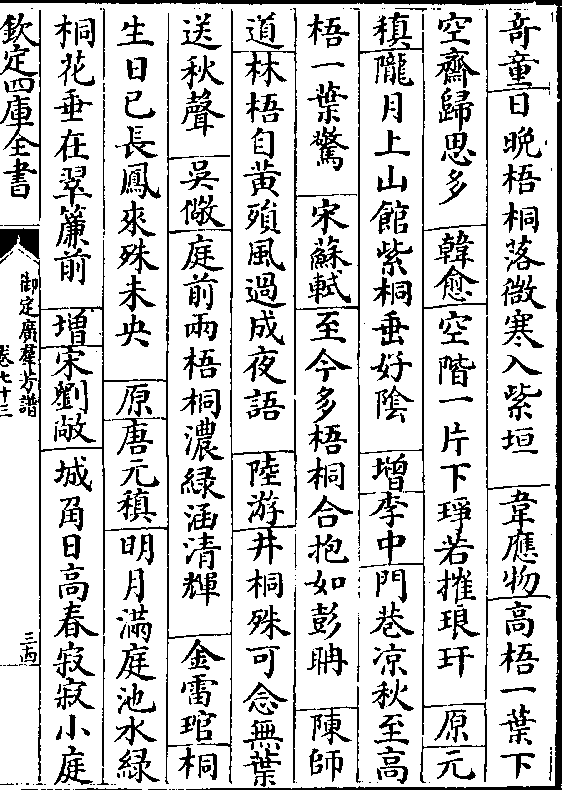 奇童日晚梧桐落微寒入紫垣　韋應物高梧一葉下
空齋歸思多　韓愈空階一片下琤若摧琅玕　原元
稹隴月上山館紫桐垂好陰　増李中門巷凉秋至高
梧一葉驚　宋蘇軾至今多梧桐合抱如彭聃　陳師
道林梧自黃殞風過成夜語　陸游井桐殊可念無葉
送秋聲　吳儆庭前兩梧桐濃綠涵清輝　金雷琯桐
生日已長鳳來殊未央　原唐元稹明月滿庭池水綠
桐花垂在翠簾前　増宋劉敞城角日高春寂寂小庭
欽定四庫全書
御定廣羣芳譜
卷七十三
三西